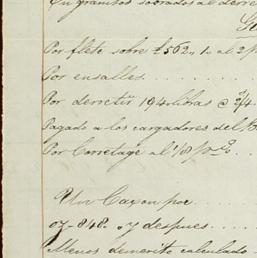 En granitos sobrados al derre
Por flete sobre £562,, 1.. al 2 p
Por ensalles
Por derretir 194 libras @ 3/4
Pagado a los cargadores del B
Por Corretage al 1/8 p%
Un Caxon por
oz 848. y despues
Menos demerito calculado